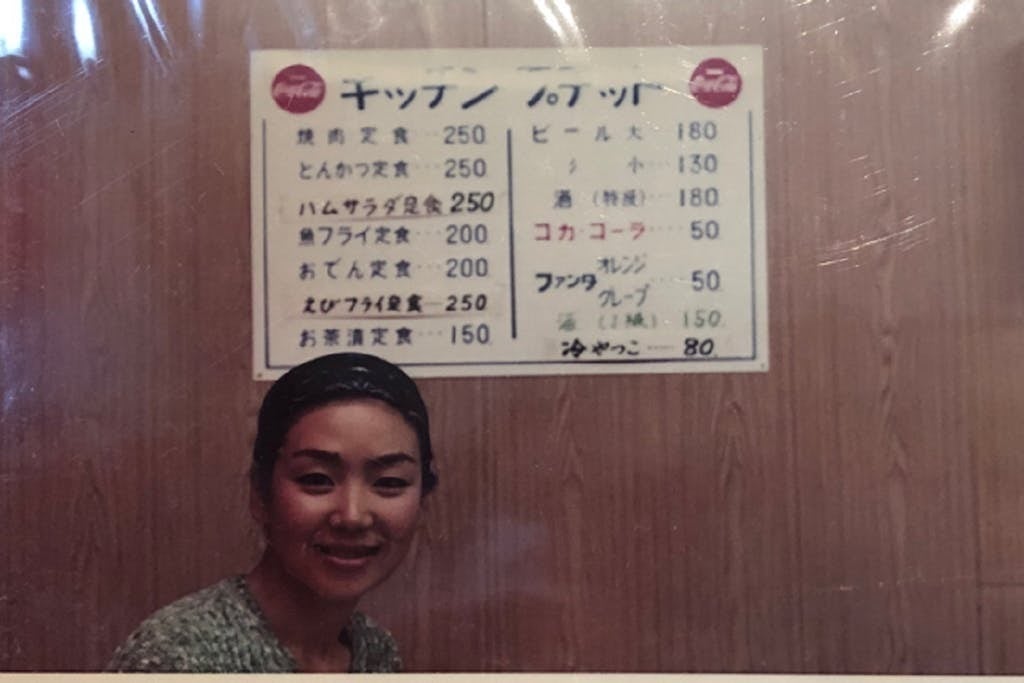 Coca-Cola
キッチン プチット
Coca-Cola
焼肉定食…250
とんかつ定食…250
ハムサラダ定食 250
魚フライ定食…200
おでん定食…200
えびフライ定食…250
お茶漬定食…150
ビール 大 180
〃 小…130
酒(特級)…180
コカ・コーラ…50
ファンタ オレンジ グレープ…50
酒 (1級) 150
冷やっこ…80